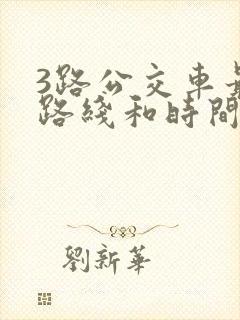 3路公交車
路綫和時間
劉新華